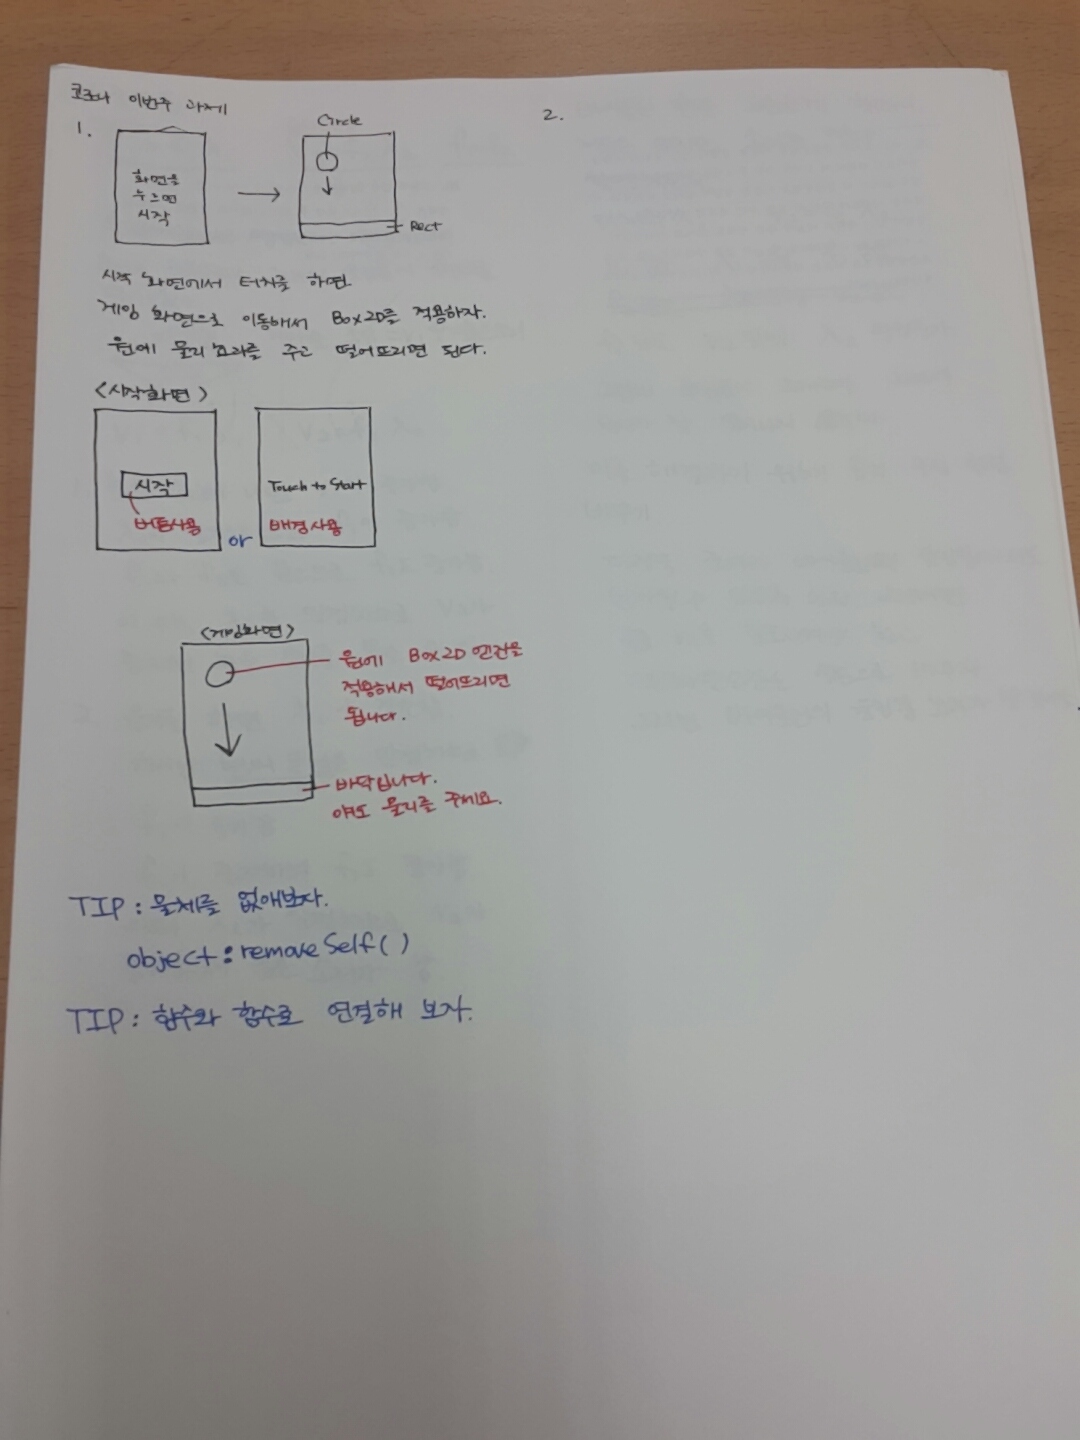 코로나 이번주 과제
1.
화면을
누르면
시작
Circle
Rect
2.
시작 화면에서 터치를 하면
게임 화면으로 이동해서 Box2D를 적용하자.
원에 물리효과를 주고 떨어뜨리면 된다.
<시작화면>
시작
버튼사용
or
Touch to Start
배경사용
<게임화면>
원에 Box2D 엔진을
적용해서 떨어뜨리면
됩니다.
바닥입니다.
얘도 물리를 주세요.
TIP : 물체를 없애보자.
object : removeSelf( )
TIP : 함수와 함수로 연결해 보자.